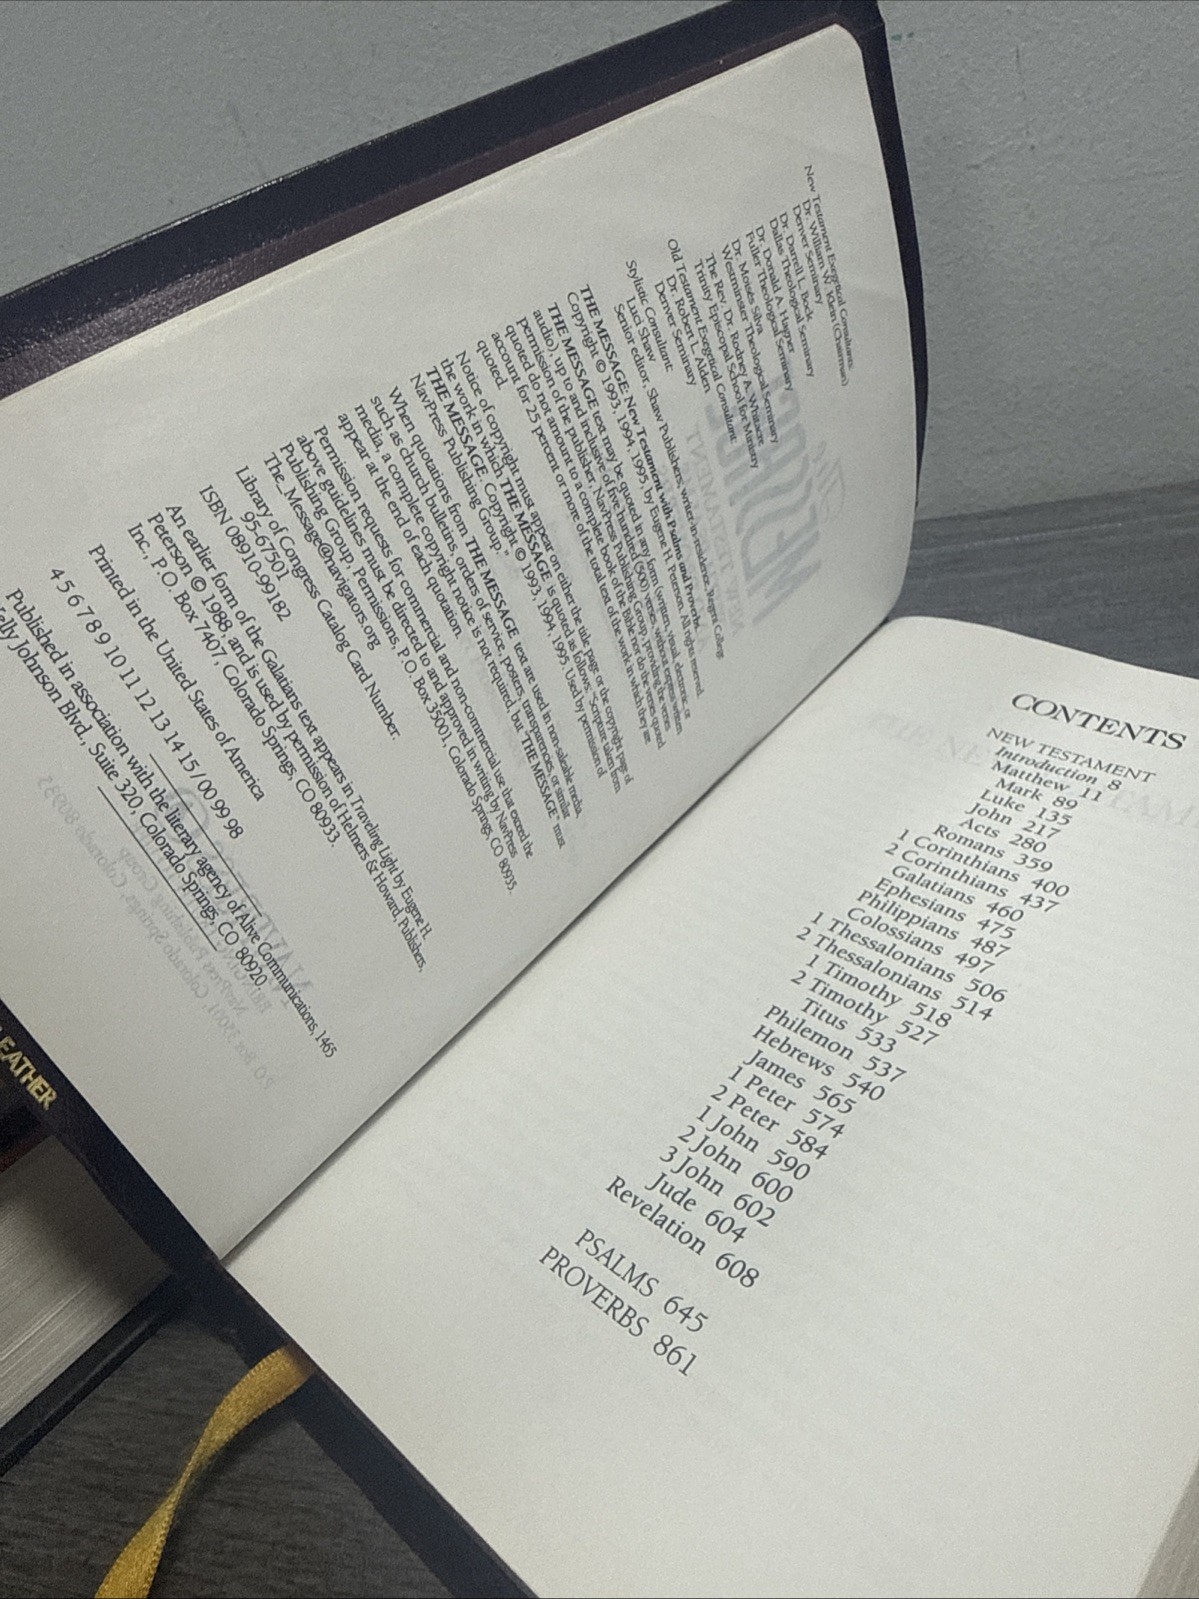 New Testament Exegetical Consultants:
Dr. William W. Klein (Chairman)
Denver Seminary
Dr. Darrell L. Bock
Dallas Theological Seminary
Dr. Donald A. Hagner
Fuller Theological Seminary
Dr. Moises Silva
Westminster Theological Seminary
The Rev. Dr. Rodney A. Whitacre
Trinity Episcopal School for Ministry
Old Testament Exegetical Consultant:
Dr. Robert L. Alden
Denver Seminary
Stylistic Consultant:
Luci Shaw
Senior editor, Shaw Publishers; writer-in-residence, Regent College
THE MESSAGE: New Testament with Psalms and Proverbs
Copyright © 1993, 1994, 1995, by Eugene H. Peterson. All rights reserved.
THE MESSAGE text may be quoted in any form (written, visual, electronic, or
audio), up to and inclusive of five hundred (500) verses, without express written
permission of the publisher, NavPress Publishing Group, providing the verses
quoted do not amount to a complete book of the Bible nor do the verses quoted
account for 25 percent or more of the total text of the work in which they are
quoted.
Notice of copyright must appear on either the title page or the copyright page of
the work in which THE MESSAGE is quoted as follows: "Scripture taken from
THE MESSAGE. Copyright © 1993, 1994, 1995. Used by permission of
NavPress Publishing Group."
When quotations from THE MESSAGE text are used in non-saleable media,
such as church bulletins, orders of service, posters, transparencies, or similar
media, a complete copyright notice is not required, but "THE MESSAGE" must
appear at the end of each quotation.
Permission requests for commercial and non-commercial use that exceed the
above guidelines must be directed to and approved in writing by NavPress
Publishing Group, Permissions, P.O. Box 35001, Colorado Springs, CO 80935.
The_Message@navigators.org
Library of Congress Catalog Card Number:
95-67501
ISBN 08910-99182
An earlier form of the Galatians text appears in Traveling Light by Eugene H.
Peterson © 1988, and is used by permission of Helmers & Howard, Publishers,
Inc., P.O. Box 7407, Colorado Springs, CO 80933.
Printed in the United States of America
4 5 6 7 8 9 10 11 12 13 14 15 / 00 99 98
Published in association with the literary agency of Alive Communications, 1465
Kelly Johnson Blvd., Suite 320, Colorado Springs, CO 80920.
LEATHER
CONTENTS
NEW TESTAMENT
Introduction 8
Matthew 11
Mark 89
Luke 135
John 217
Acts 280
Romans 359
1 Corinthians 400
2 Corinthians 437
Galatians 460
Ephesians 475
Philippians 487
Colossians 497
1 Thessalonians 506
2 Thessalonians 514
1 Timothy 518
2 Timothy 527
Titus 533
Philemon 537
Hebrews 540
James 565
1 Peter 574
2 Peter 584
1 John 590
2 John 600
3 John 602
Jude 604
Revelation 608
PSALMS 645
PROVERBS 861